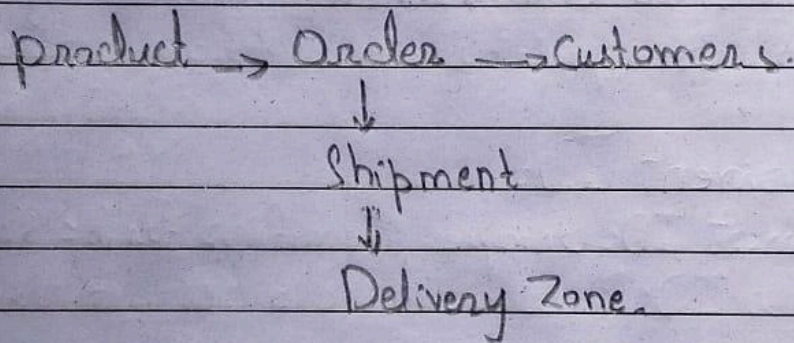 product → Order → Customers.
↓
Shipment
⇓
Delivery Zone.